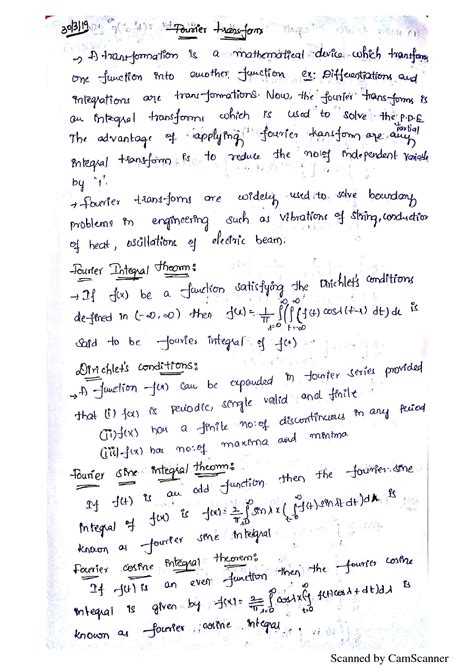 30/3/19
Fourier transform
→ A transformation is a mathematical device which transforms
one function into another function ex: Differentiations and
integrations are transformations. Now, the fourier transform is
an integral transform which is used to solve the P.D.E.
partial
The advantage of applying fourier transform are any
integral transform is to reduce the no:of independent variable
by '1'.
→ fourier transforms are widely used to solve boundary
problems in engineering such as vibrations of string, conduction
of heat, oscillations of electric beam.
Fourier Integral theorm:
→ If f(x) be a function satisfying the Drichlet's conditions
defined in (-∞,∞) then f(x) = 1/π ∫_{λ=0}^{∞} (∫_{t=-∞}^{∞} f(t) cosλ(t-x) dt) dλ is
said to be fourier integral of f(x)
Dirichlet's conditions:
→ A function f(x) can be expanded in fourier series provided
that (i) f(x) is periodic, single valid and finite
(ii) f(x) has a finite no:of discontinuous in any period
(iii) f(x) has no:of maxima and minima
Fourier sine integral theorm:
If f(t) is an odd function then the fourier sine
integral of f(x) is f(x) = 2/π ∫_{0}^{∞} sinλx (∫_{t=0}^{∞} f(t) sinλt dt) dλ is
known as fourier sine integral
Fourier cosine integral theorem:
If f(t) is an even function then the fourier cosine
integral is given by f(x) = 2/π ∫_{λ=0}^{∞} cosλx (∫_{t=0}^{∞} f(t) cosλt dt) dλ is
known as fourier cosine integral
Scanned by CamScanner